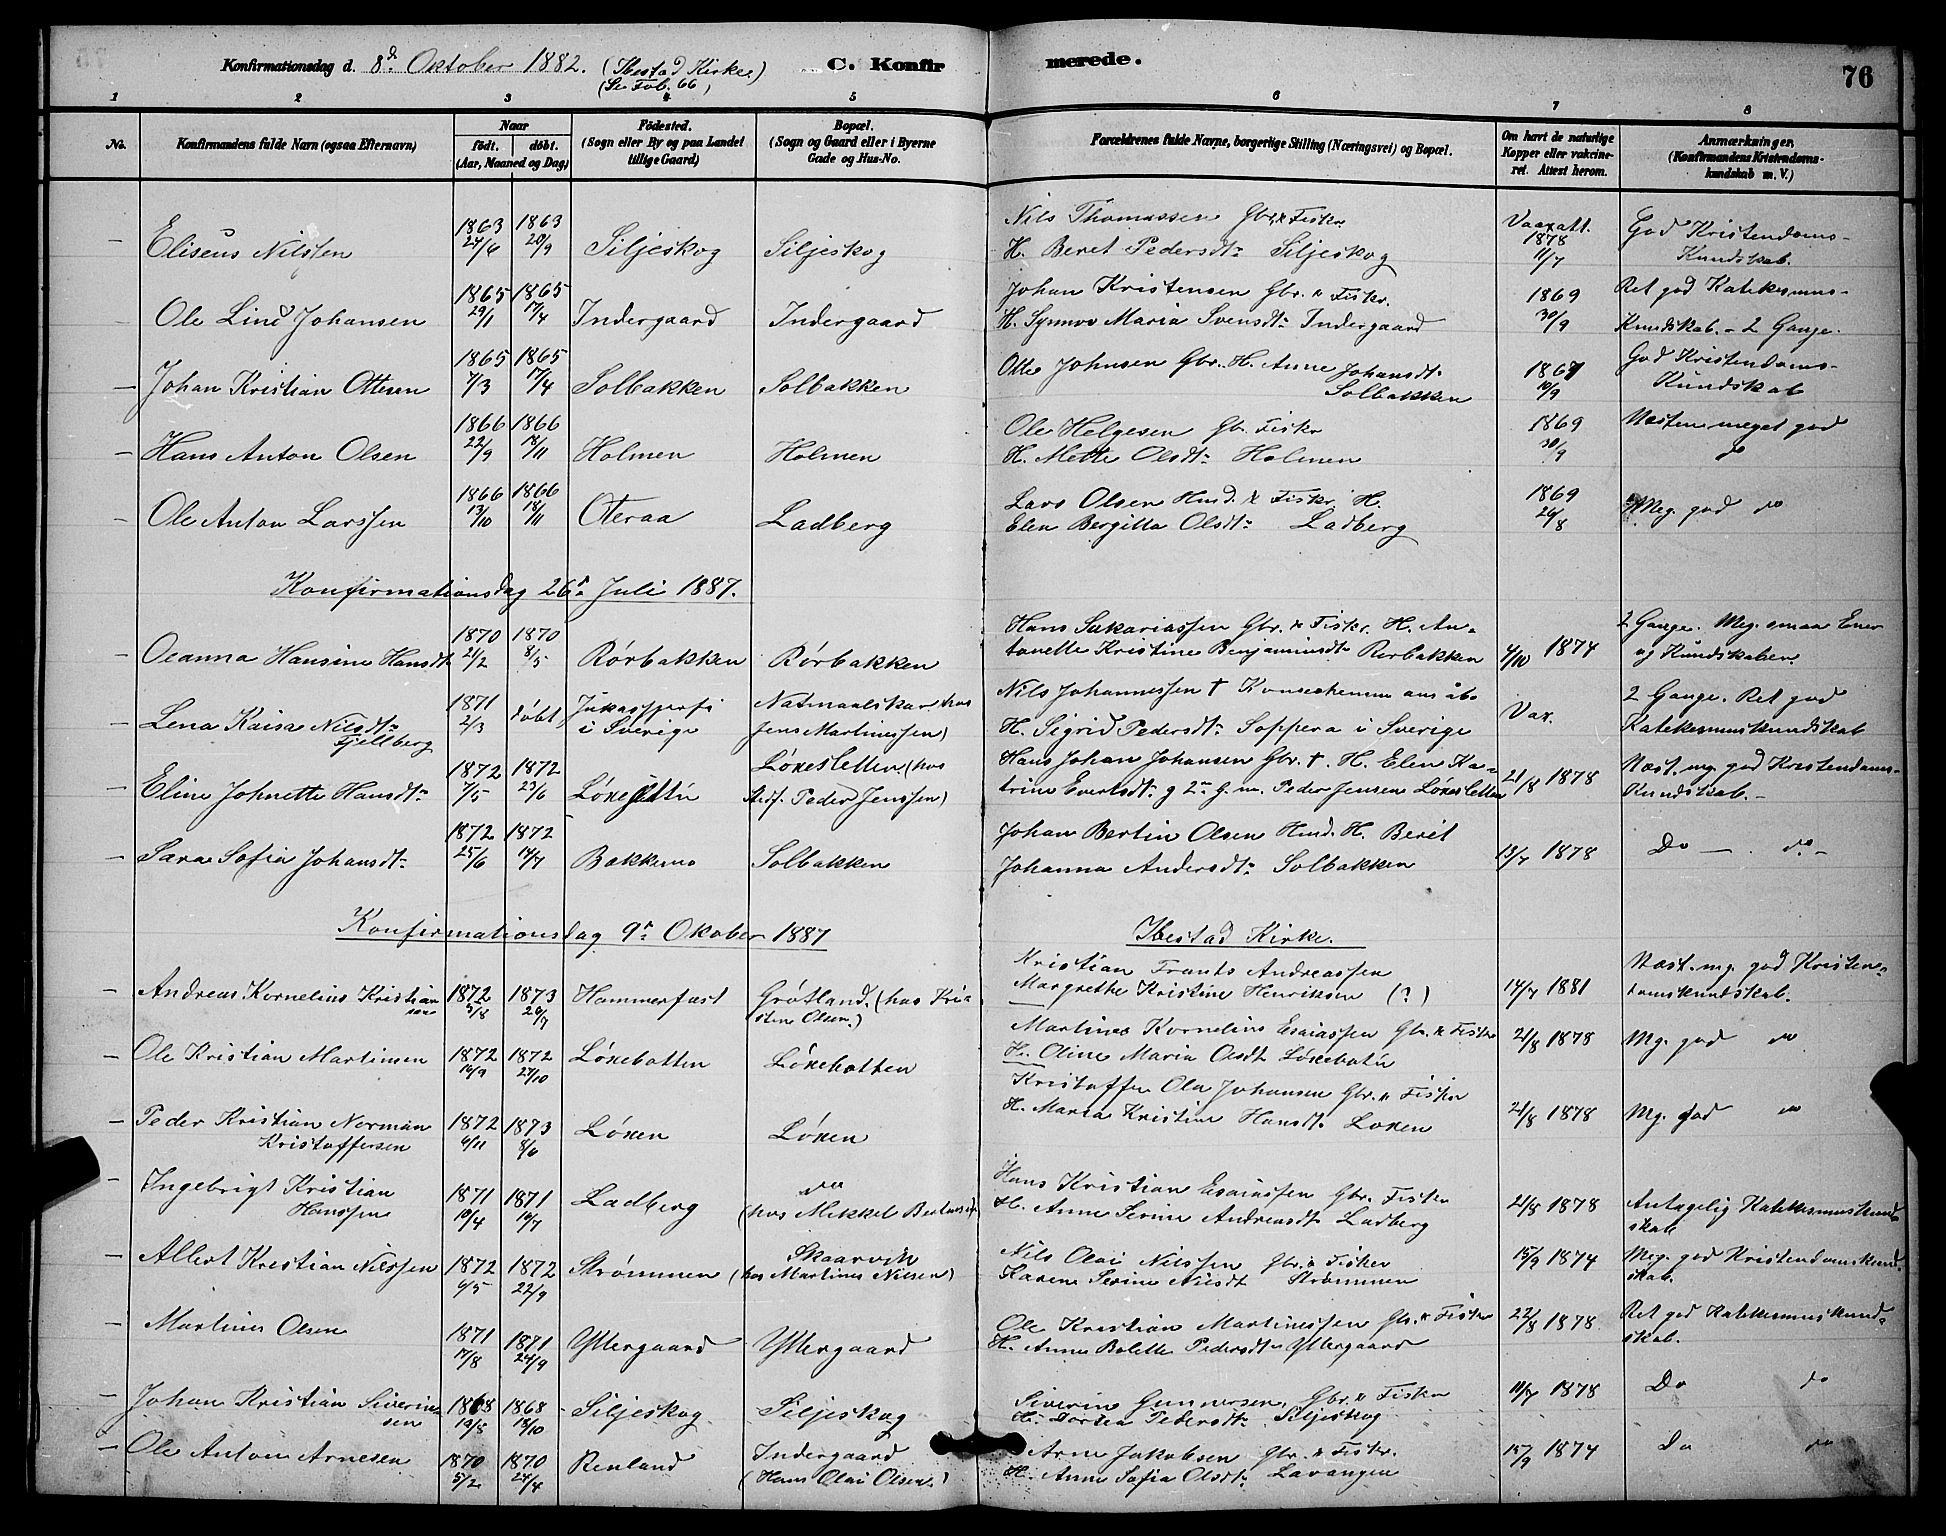 Konfirmationsdag d. 8de Oktober 1882. (Ibestad Kirke)
(Se Fol. 66)
C. Konfirmerede.
76
1 2 3 4 5 6 7 8
No.
Konfirmandens fulde Navn (ogsaa Efternavn)
Naar
födt. döbt.
(Aar, Maaned og Dag)
Födested.
(Sogn eller By og paa Landet
tillige Gaard)
Bopæl.
(Sogn og Gaard eller i Byerne
Gade og Hus-No.
Forældrenes fulde Navne, borgerlige Stilling (Næringsvei) og Bopæl.
Om havt de naturlige
Kopper eller vakcine-
ret. Attest herom.
Anmærkninger.
(Konfirmandens Kristendoms-
kundskab m. V.)
– Eliseus Nilssen 1863 24/6 1863 20/9 Siljeskog Siljeskog
Nils Thomassen Gbr. & Fiskr.
H. Beret Pedersdtr. Siljeskog
Vaccatt. 1878 11/7
God Kristendoms-
Kundskab.
– Ole Lind Johansen 1865 29/1 1865 17/4 Indergaard Indergaard
Johan Kristensen Gbr. & Fiskr.
H. Synnov Maria Svensdtr. Indergaard
1869 30/9
Ret god Katekesmus-
Kundskab. – 2 Gange.
– Johan Kristian Ottesen 1865 7/3 1865 17/4 Solbakken Solbakken
Otte Johnsen Gbr. H. Anne Johansdtr.
Solbakken
1867 10/9
God Kristendoms-
Kundskab
– Hans Anton Olsen 1866 22/9 1866 18/11 Holmen Holmen
Ole Helgesen Gb. Fiskr
H. Mette Olsdtr. Holmen
1869 30/9
Næsten meget god
do
– Ole Anton Larssen 1866 13/10 1866 18/11 Oteraa Ladberg
Lars Olsen Husd. & Fiskr. H.
Elen Bergitta Olsdtr. Ladberg
1869 26/8
Meg. god do
Konfirmationsdag 26de Juli 1887.
– Oeanna Hansine Hansdtr 1870 21/2 1870 8/5 Rörbakken Rörbakken
Hans Sakariassen Gbr. & Fiskr. H. An-
tonette Kristine Benjaminsdtr. Rørbakken
4/10 1874
2 Gange. Meg. smaa Evner
og Kundskaber.
– Lena Kaisa Nilsdtr.
Fjellberg
1871 2/3 döbt
i Sverige
hos
Jens Martinessen)
Nils Johannessen †
H. Sigrid Pedersdtr. Soppera i Sverige
Vax.
2 Gange. Ret god
Katekesmuskundskab
– Eline Johnette Hansdtr. 1872 7/5 1872 23/6
Löxesletten. (hos
Stedf. Peder Jenssen)
Hans Johan Johansen Gbr. †. H. Elen Ka-
trine Evertsdtr. g 2. G. m. Peder Jensen Löxesletten
21/8 1878
Næst. mg. god Kristendoms-
Kundskab. –
– Sara Sofia Johansdtr. 1872 25/6 1872 14/7 Bakkemo Solbakken
Johan Bertin Olsen Husd. H. Berit
Johanna Andersdtr. Solbakken
13/7 1878
Do – . do –
Konfirmationsdag 9de Okober 1887 Ibestad Kirke.
– Andreas Kornelius Kristian
sen
1872 5/8 1873 20/7 Hammerfæst Grötland. (hos Kri-
stine Olsen.)
Kristian Frants Andreassen
Margrethe Kristine Henriksen (?)
14/7 1881
Næst. mg. god Kristen-
domskundskab.
– Ole Kristian Martinsen 1872 16/9 1872 27/10 Löxebotten Löxebotten
Martines Kornelius Esaiassen Gbr. & Fisker
H. Oline Maria Olsdtr Löxebotn
21/8 1878
Mg. god do
– Peder Kristian Norman
Kristoffersen
1872 6/11 1873 8/6 Löxen Löxen
Kristoffer Ola Johansen Gbr. & Fisker
H. Maria Kristine Hansdtr. Löxen
21/8 1878
Mg. god do
– Ingebrigt Kristian
Hanssen
1871 10/4 1871 16/7 Ladberg do
(hos Mikkel Berntsen)
Hans Kristian Esaiassen Gbr. Fisker
H. Anne Serine Andreasdtr. Ladberg
21/8 1878
Antagelig Katekesmuskund-
skab
– Albert Kristian Nilssen 1872 6/5 1872 22/9 Strömmen Skaarvik
(hos Martines Nielsen)
Nils Olai Nilssen Gbr. & Fisker
Karen Serine Nilsdt Strömmen
15/9 1874
Meg. god Kristendomskund-
skab.
– Martines Olsen 1871 7/8 1871 24/9 Yttergaard Yttergaard
Ole Kristian Martinessen Gb. & Fisker
H. Anne Bolette Pedersdtr Yttergaard
22/8 1878
Ret god Katekesmuskund-
skab.
– Johan Kristian Siverin-
sen
1868 19/8 1868 18/10 Siljeskog Siljeskog
Siverin Gunnersen, Gbr. & Fisker
H. Dortea Pedersdtr. Siljeskog
11/7 1878
Do do
– Ole Anton Arnesen 1870 5/2 1870 24/4 Renland Indergaard
(Hans Olai Olsen.)
Arne Jakobsen Gbr. & Fiskr.
H. Anne Sofia Olsdtr. Lavangen
15/9 1874
Do do